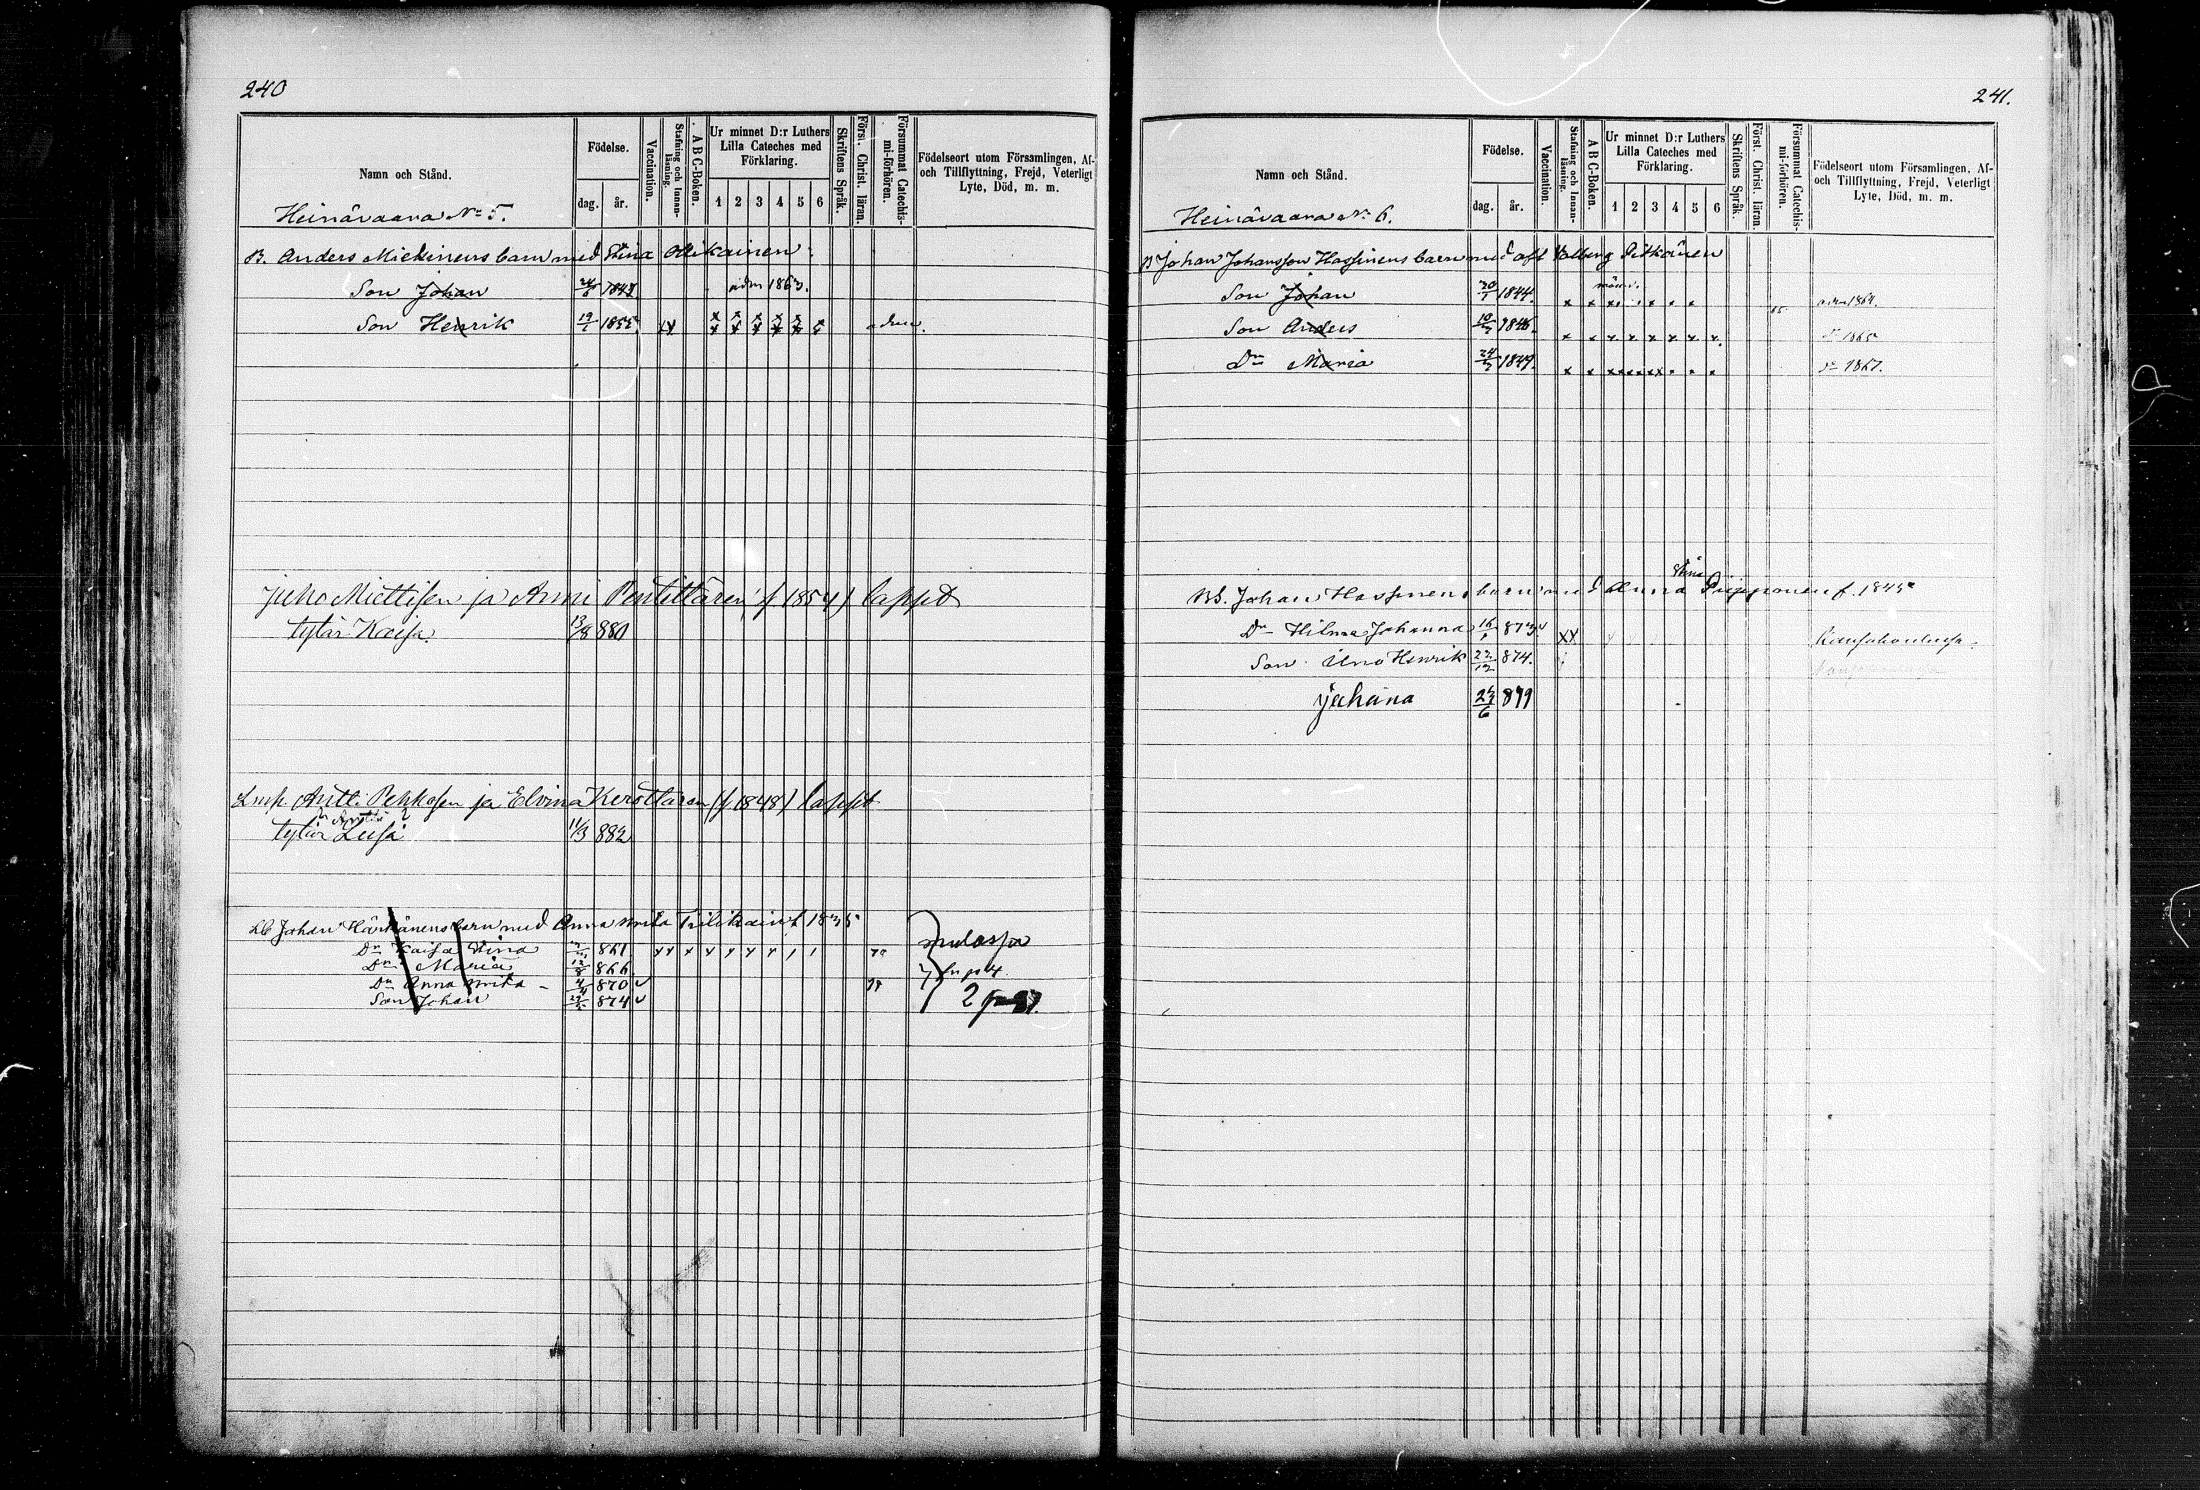 240
Namn och Stånd.
Födelse.
dag. år.
Vaccination.
Stafning och Innanläsning.
A B C-Boken.
Ur minnet D:r Luthers Lilla Cateches med Förklaring.
1 2 3 4 5 6
Skriftens Språk.
Först. Christ. läran.
Försummat Catechismi-förhören.
Födelseort utom Församlingen, Af- och Tillflyttning, Frejd, Veterligt Lyte, Död, m. m.
Heinävaara No 5.
B. Anders Miettinens barn med Stina Ollikainen
Son Johan 1847. adm 1863.
Son Henrik 19/1 1852 x x x x x x
Juho Miettisen ja Anni Penttittären (f 1854) lapset
tytär Kaisa. 13/8 880
Lmp Antti Pekkosen ja Elvina Kerottären (f. 1848) lapset
tytär Luisa 11/3 882
Johan Härkänens barn med Anna 1835
Dr Kaisa Stina 861
Dr Maria 12/8 866
Dr Anna 870
Son Johan 874
241.
Namn och Stånd.
Födelse.
dag. år.
Vaccination.
Stafning och Innanläsning.
A B C-Boken.
Ur minnet D:r Luthers Lilla Cateches med Förklaring.
1 2 3 4 5 6
Skriftens Språk.
Först. Christ. läran.
Försummat Catechismi-förhören.
Födelseort utom Församlingen, Af- och Tillflyttning, Frejd, Veterligt Lyte, Död, m. m.
Heinävaara No 6.
B Johan Johansson Hassinens barn med afl Valborg Pitkänen
Son Johan 20/1 1844. adm 1864.
Son Anders 1846. do 1865
Dr Maria 24/3 1849. do 1867.
Johan Hassinens barn med Anna Stina Piipponen f. 1845
Dr Hilma Johanna 16/1 873
Son Uno Henrik 22/12 874.
Juhana 6 879